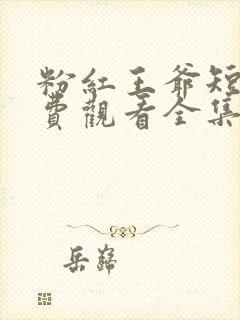 粉紅王爺短
費觀看全集
岳巋